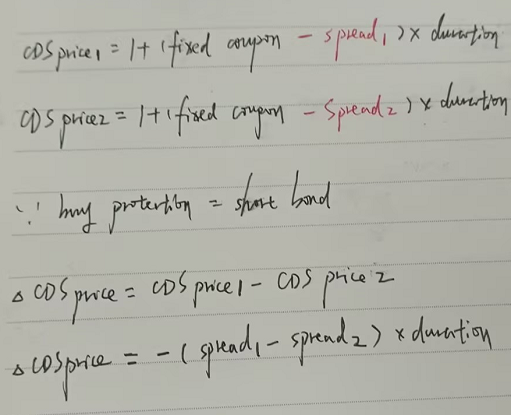 CDS price1 = 1 + (fixed coupon - spread1) × duration
CDS price2 = 1 + (fixed coupon - Spread2) × duration
∵ buy protection = short bond
△ CDS price = CDS price1 - CDS price2
△ CDS price = - (spread1 - spread2) × duration